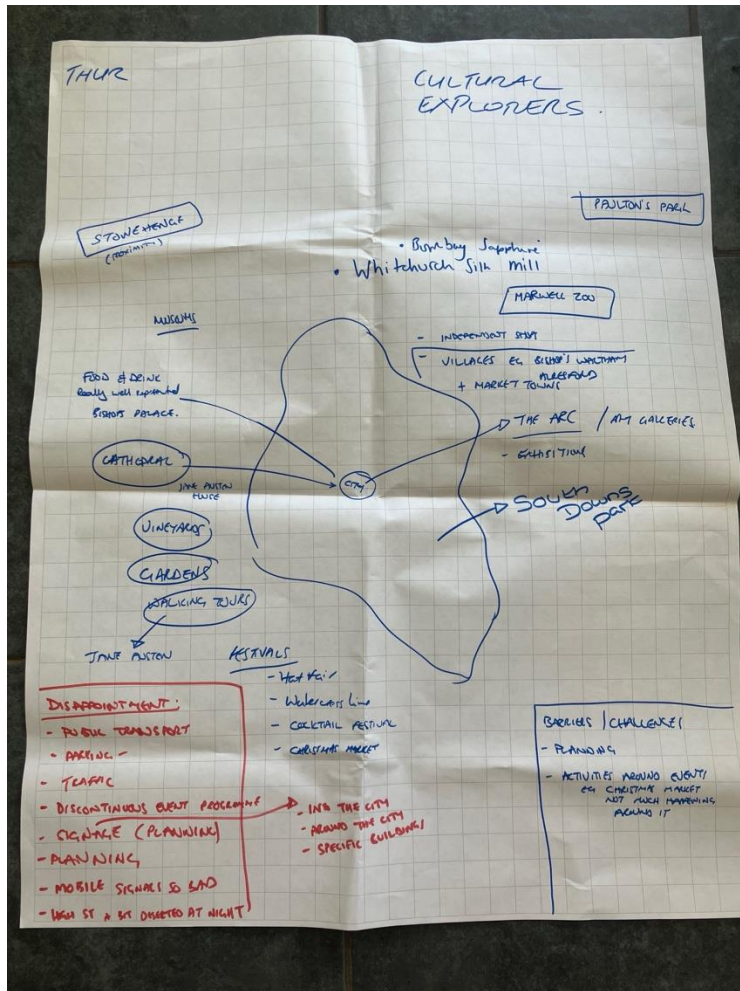 THUR
CULTURAL
EXPLORERS.
PAULTON'S PARK
STONEHENGE
(PROXIMITY)
• Bombay Sapphire
• Whitchurch Silk mill
MARWELL ZOO
MUSEUMS
- INDEPENDENT SHOP
- VILLAGES EG BISHOP'S WALTHAM
ALRESFORD
+ MARKET TOWNS
FOOD & DRINK
Really well represented
BISHOPS PALACE.
THE ARC / ART GALLERIES
- EXHIBITION
CATHEDRAL
JANE AUSTEN
HOUSE
CITY
SOUTH
DOWNS
PARK
VINEYARDS
GARDENS
WALKING TOURS
JANE AUSTEN
FESTIVALS
- Hat Fair
- Watercress Line
- COCKTAIL FESTIVAL
- CHRISTMAS MARKET
DISAPPOINTMENT:
- PUBLIC TRANSPORT
- PARKING -
- TRAFFIC
- DISCONTINUOUS EVENT PROGRAMME
- SIGNAGE (PLANNING)
- PLANNING
- MOBILE SIGNALS SO BAD
- HIGH ST A BIT DESERTED AT NIGHT
- INTO THE CITY
- AROUND THE CITY
- SPECIFIC BUILDINGS
BARRIERS / CHALLENGES
- PLANNING
- ACTIVITIES AROUND EVENTS
EG CHRISTMAS MARKET
NOT MUCH HAPPENING
AROUND IT